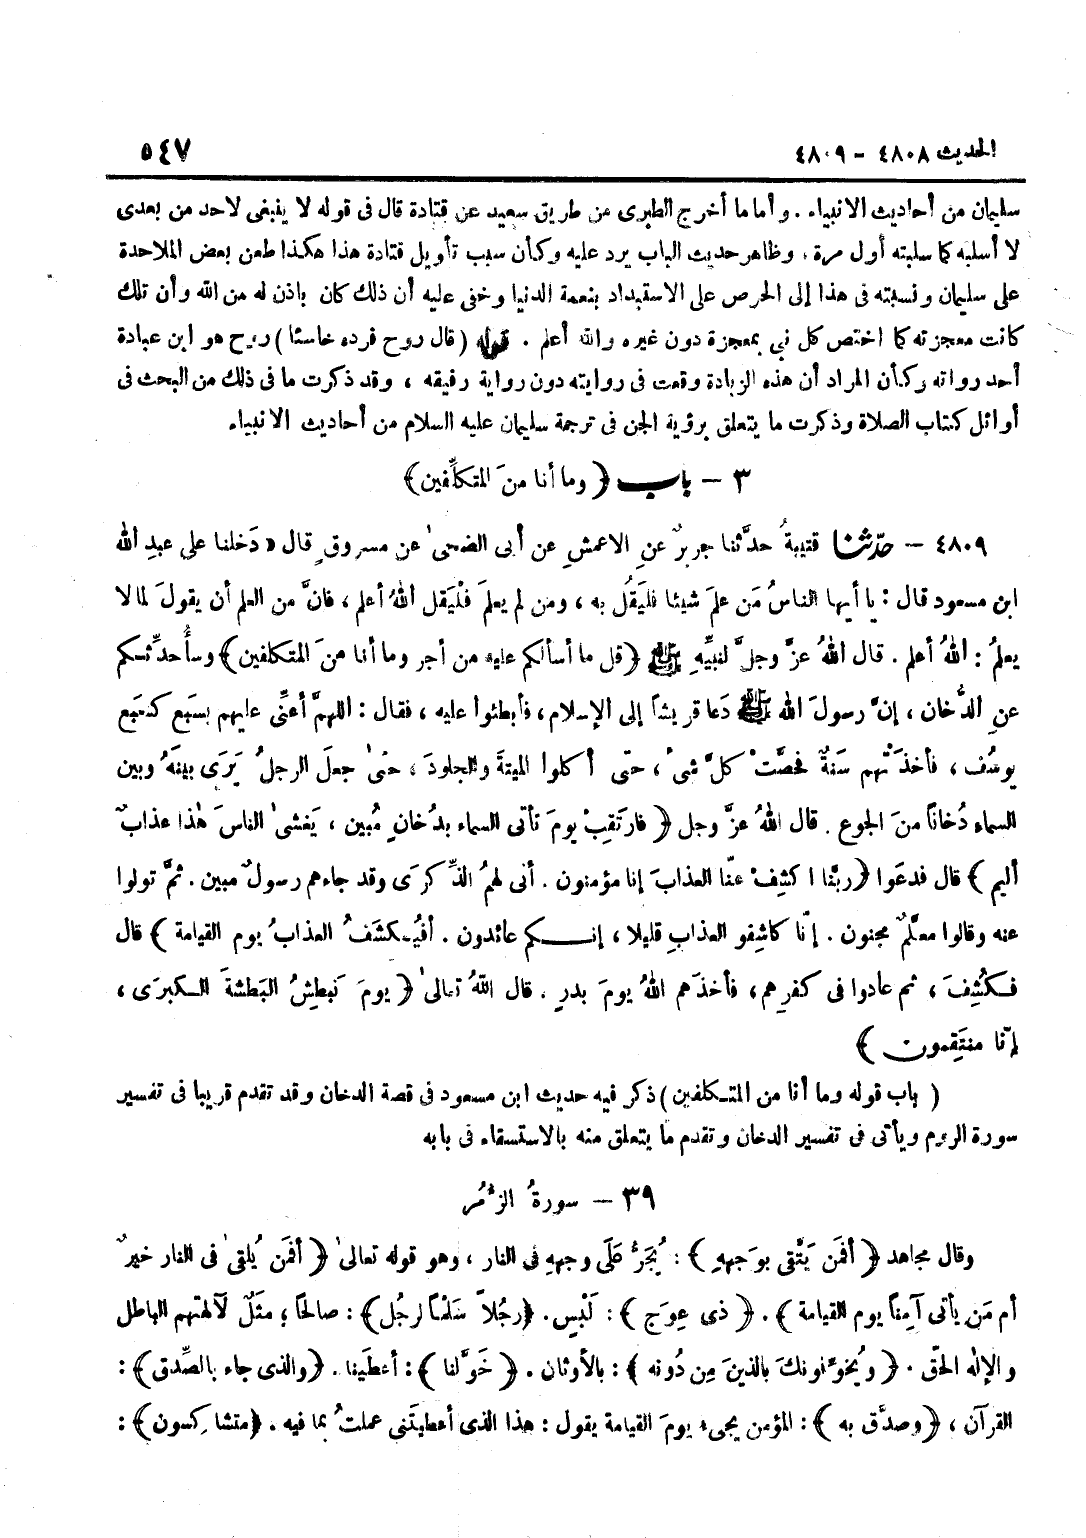 الحديث ٤٨٠٨ - ٤٨٠٩ ٥٤٧
سليمان من أحاديث الانبياء . وأما ما أخرج الطبرى من طريق سعيد عن قتادة قال فى قوله لا ينبغى لاحد من بعدى
لا أسلبه كما سلبته أول مرة ، وظاهر حديث الباب يرد عليه وكأن سبب تأويل قتادة هذا هكذا طعن بعض الملاحدة
على سليمان ونسبته فى هذا إلى الحرص على الاستبداد بنعمة الدنيا وخفى عليه أن ذلك كان باذن له من الله وأن تلك
كانت معجزته كما اختص كل نبى بمعجزة دون غيره والله أعلم . قوله ( قال روح فرده خاسئا ) روح هو ابن عبادة
أحد رواته وكأن المراد أن هذه الزيادة وقعت فى روايته دون رواية رفيقه ، وقد ذكرت ما فى ذلك من البحث فى
أوائل كتاب الصلاة وذكرت ما يتعلق برؤية الجن فى ترجمة سليمان عليه السلام من أحاديث الانبياء
٣ - باب ﴿ وما أنا منَ المتكلِّفين ﴾
٤٨٠٩ - حدّثنا قتيبةُ حدَّثنا جريرٌ عنِ الاعمشِ عن أبى الضحىٰ عن مسروقٍ قال « دَخلنا على عبدِ الله
ابن مسعود قال : يا أيها الناسُ مَن علمَ شيئا فليَقُل به ، ومن لم يعلمَ فليَقل اللهُ أعلم ، فانَّ من العلم أن يقولَ لما لا
يعلمُ : اللهُ أعلم . قال اللهُ عزَّ وجلَّ لنبيِّهِ ﷺ ﴿ قل ما أسألكم عليه من أجر وما أنا منَ المتكلفين ﴾ وسأُحدِّثكم
عنِ الدُّخان ، إنَّ رسولَ الله ﷺ دَعا قريشاً إلى الإسلام ، فأبطئوا عليه ، فقال : اللهمَّ أعنِّى عليهم بسَبع كسَبع
يوسُف ، فأخذَتْهم سَنةٌ فحصَّتْ كلَّ شىءٍ ، حتّى أكلوا الميتةَ والجلودَ ، حتىٰ جعلَ الرجلُ يَرَى بينَهُ وبين
السماء دُخاناً منَ الجوع . قال اللهُ عزَّ وجل ﴿ فارتَقِبْ يومَ تأتى السماء بدُخانٍ مُبين ، يَغشىٰ الناسَ هٰذا عذابٌ
أليم ﴾ قال فدعَوا ﴿ ربَّنا اكشِفْ عنّا العذابَ إنا مؤمنون . أنى لهمُ الذِّكرَى وقد جاءهم رسولٌ مبين . ثمَّ تولوا
عنه وقالوا معلَّمٌ مجنون . إنّا كاشِفو العذابِ قليلا ، إنكم عائدون . أفيُكشَفُ العذابُ يوم القيامة ﴾ قال
فكُشِفَ ، ثم عادوا فى كفرِهم ، فأخذَهم اللهُ يومَ بدرٍ . قال اللهُ تعالىٰ ﴿ يومَ نَبطِشُ البَطشةَ الكبرَى ،
إنّا منتَقِمون ﴾
( باب قوله وما أنا من المتكلفين ) ذكر فيه حديث ابن مسعود فى قصة الدخان وقد تقدم قريبا فى تفسير
سورة الروم ويأتى فى تفسير الدخان وتقدم ما يتعلق منه بالاستسقاء فى بابه
٣٩ - سورةُ الزُّمُر
وقال مجاهد ﴿ أفمَن يَتَّقى بوَجههِ ﴾ : يُجَرُّ عَلَى وجههِ فى النار ، وهو قوله تعالىٰ ﴿ أفمَن يُلقىٰ فى النار خيرٌ
أم مَن يأتى آمِناً يوم القيامة ﴾ . ﴿ ذى عِوَج ﴾ : لَبْسٍ . ﴿ رجُلاً سَلَماً لرجُل ﴾ : صالحاً ؛ مثَلٌ لآلهتهم الباطل
والإلٰه الحقّ . ﴿ ويُخوِّفونكَ بالذينَ مِن دُونه ﴾ : بالأوثان . ﴿ خَوَّلنا ﴾ : أعطَينا . ﴿ والذى جاء بالصِّدق ﴾ :
القرآن ، ﴿ وصدَّق به ﴾ : المؤمن يجىء يومَ القيامة يقول : هذا الذى أعطيتَنى عملتُ بما فيه . ﴿ متشاكِسون ﴾ :